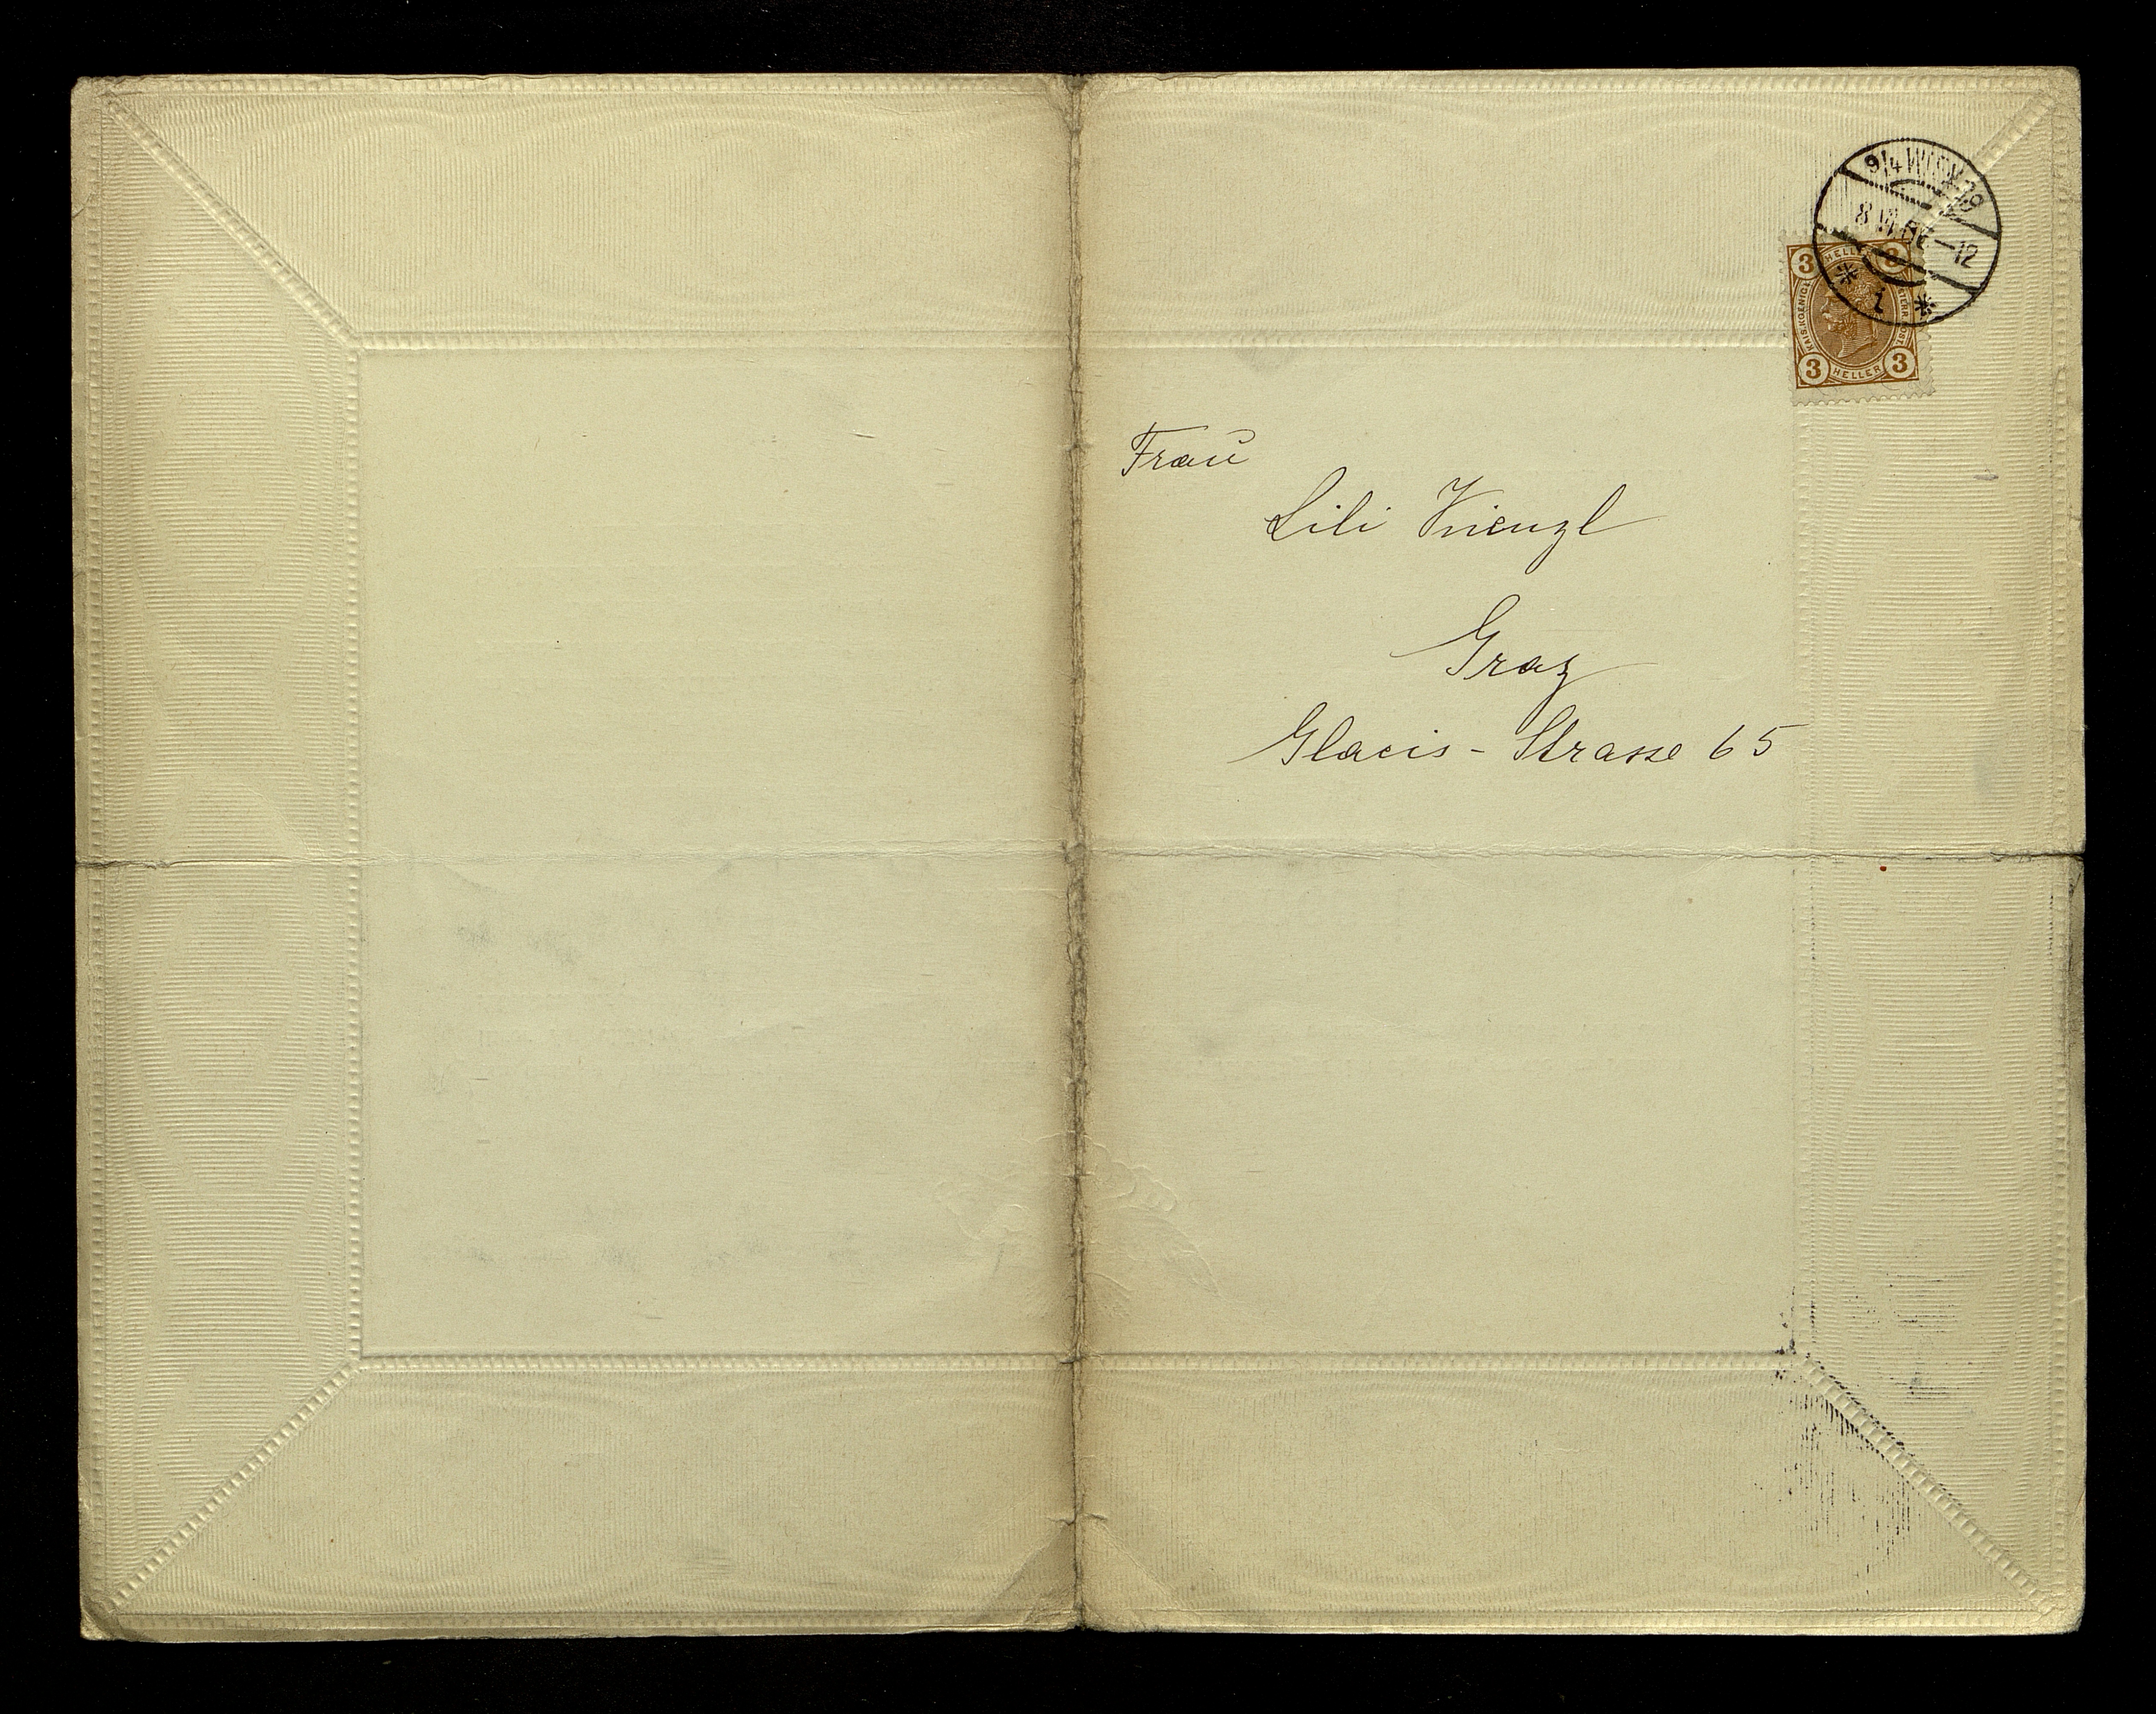 9/4 WIEN 19
8
-12
1
3 HELLER 3
KAIS. KOENIGL
3 HELLER 3
Frau
Lili Kienzl
Graz
Glacis - Strasse 65